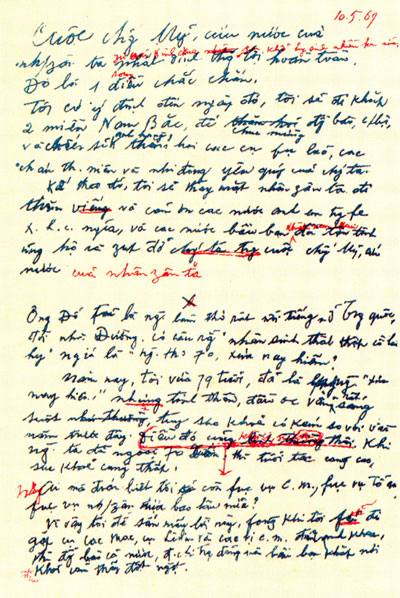 10.5.69
Cuộc chố Mỹ, cứu nước của
nh/zân ta nhất định thắng lợi hoàn toàn.
song
Đó là 1 điều chắc chắn.
Tôi có ý định đến ngày đó, tôi sẽ đi khắp
2 miền Nam Bắc, để chúc mừng
và chiến sĩ anh hùng thăm hỏi các cụ fụ lão, các
cháu th. niên và nhi đồng yêu quý của ch/ta.
Kế theo đó, tôi sẽ thay mặt nhân zân ta đi
thăm viếng và cám ơn các nước anh em tr/fe
X.h.c. nghĩa, và các nước bầu bạn khắp năm châu đã tận tình
ủng hộ và zúp đỡ cuộc chố Mỹ, cứu
nước của nhân zân ta
x
Ông Đỗ Fủ là người làm thơ rất nổi tiếng ở Trung quốc,
đời nhà Đường. có câu rằng "nhân sinh thất thập cổ lai
hy" nghĩa là "ng thọ 70, xưa nay hiếm".
Năm nay, tôi vừa 79 tuổi, đã là lớp ng "xưa
nay hiếm" nhưng tinh thần, đầu óc vẫn rất sáng
suốt tuy sức khoẻ có kém so với vài
năm trước đây. Khi
ng ta đã ngoài 70 xuân thì tuổi tác càng cao,
sức khoẻ càng thấp.
Ai mà đoán biết tôi còn fục vụ C.M., fục vụ Tổ quốc
fục vụ nh/zân được bao lâu nữa?
Vì vậy tôi để sẵn mấy lời này, fòng khi tôi đi
gặp cụ Các Mác, cụ Lênin và các vị c.m. khác,
thì đồng bào cả nước, đ.chí trong đảng và bầu bạn khắp nơi
khỏi cảm thấy đột ngột.